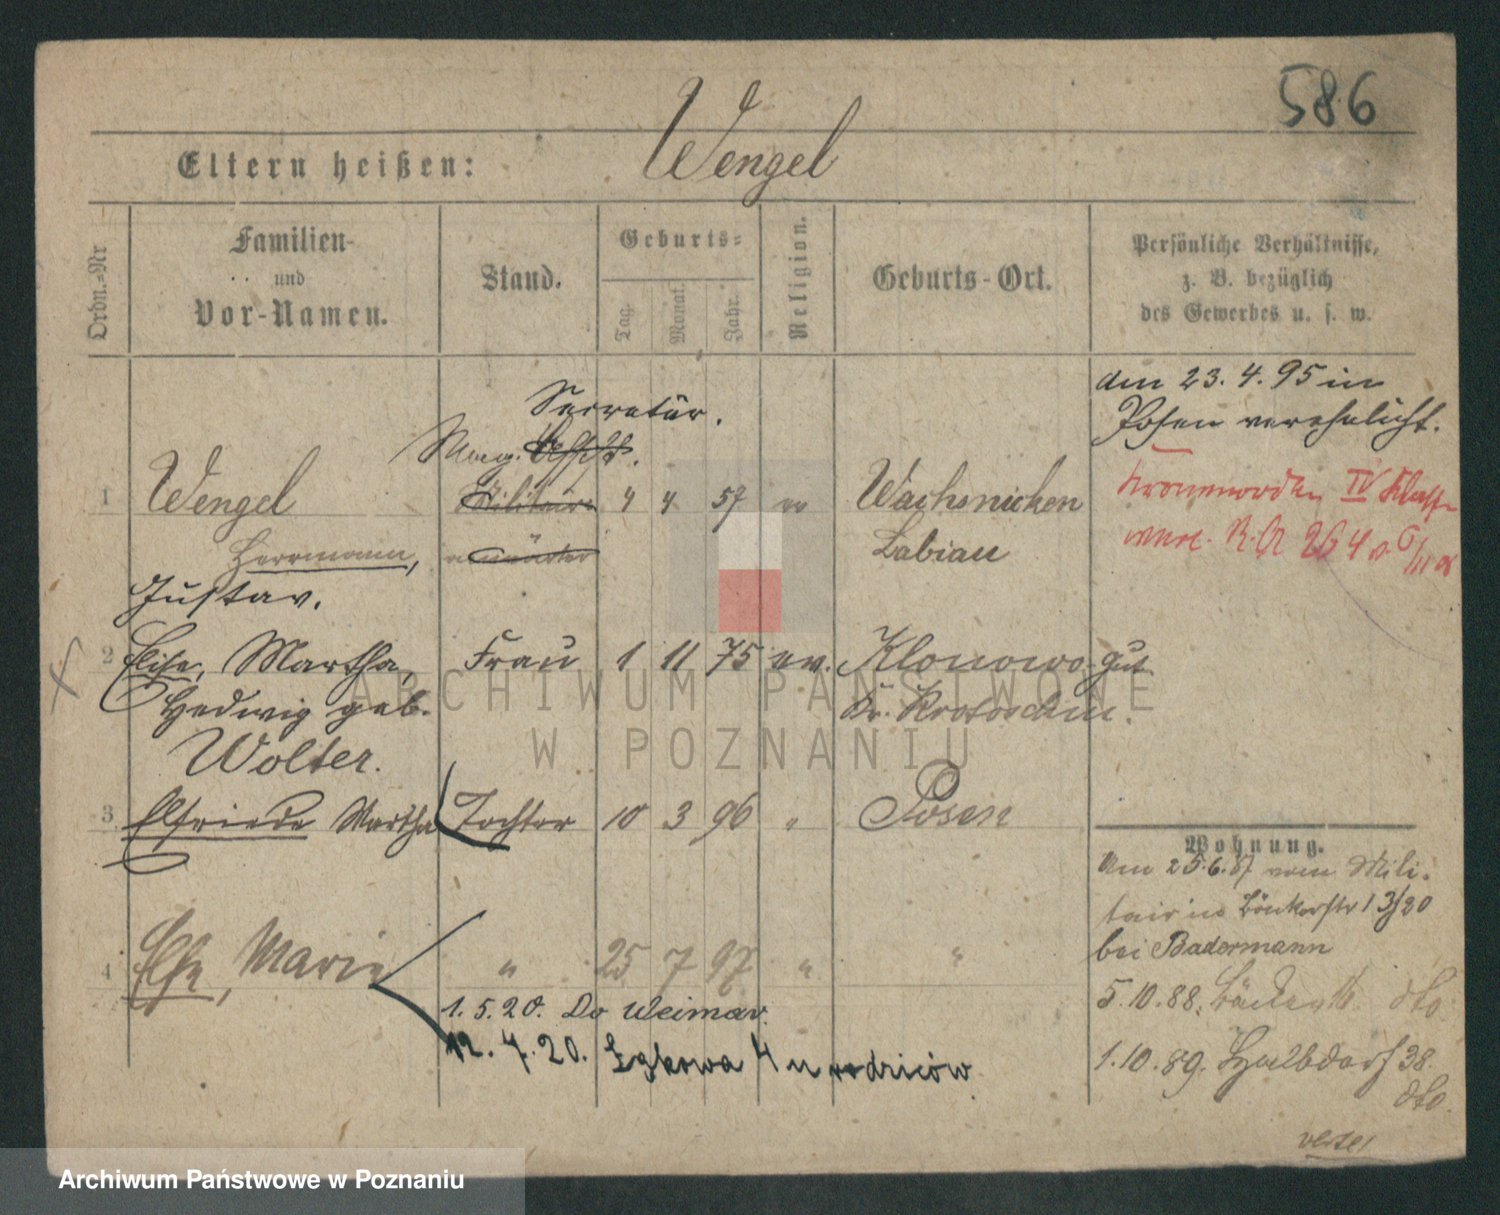 586
Wengel
Eltern heißen:
Ordn.-Nr
Familien-
und
Vor-Namen.
Stand.
Geburts-
Tag.
Monat.
Jahr.
Religion.
Geburts-Ort.
Persönliche Verhältnisse,
z. B. bezüglich
des Gewerbes u. s. w.
den 23. 4. 95 in
Posen verehelicht.
Secretär.
Mag. Assist.
1 Wengel Militair- 4 4 57 ev Wachsnicken
Herrmann, anwärter Labiau
Gustav.
Kronenorden IV Klasse
2 Elise, Martha, Frau 1 11 75 ev. Klonowo gut
Hedwig geb. Kr. Krotoschin.
Wolter.
3 Elfriede Martha Tochter 10 3 96 " Posen
Wohnung.
Am 25.6.87 vom Mili-
tair in Bäckerstr 13/20
bei Badermann
4 Else, Marie " 25 7 97 " "
1.5.20. Do Weimar.
12. 4. 20. Łąkowa 4 u rodziców
5.10.88. Bäckerstr dto.
1.10.89. Halbdorf 38.
dto.
verte!
ARCHIWUM PAŃSTWOWE
W POZNANIU
Archiwum Państwowe w Poznaniu